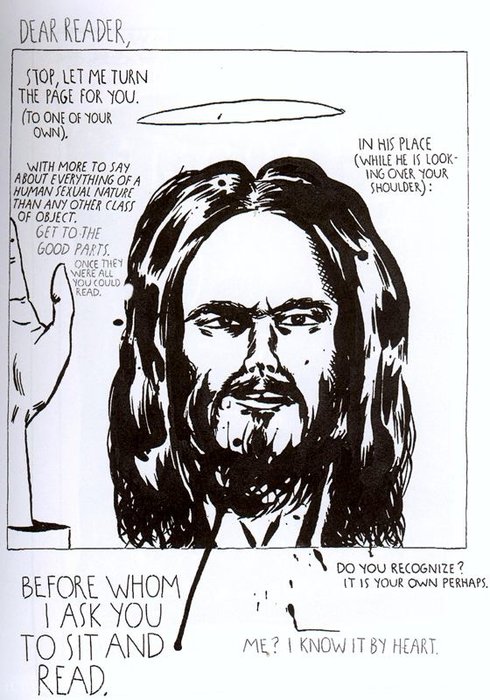 DEAR READER,
STOP, LET ME TURN
THE PAGE FOR YOU.
(TO ONE OF YOUR
OWN).
IN HIS PLACE
(WHILE HE IS LOOK-
ING OVER YOUR
SHOULDER):
WITH MORE TO SAY
ABOUT EVERYTHING OF A
HUMAN SEXUAL NATURE
THAN ANY OTHER CLASS
OF OBJECT.
GET TO THE
GOOD PARTS.
ONCE THEY
WERE ALL
YOU COULD
READ.
DO YOU RECOGNIZE?
IT IS YOUR OWN PERHAPS.
BEFORE WHOM
I ASK YOU
TO SIT AND
READ.
ME? I KNOW IT BY HEART.